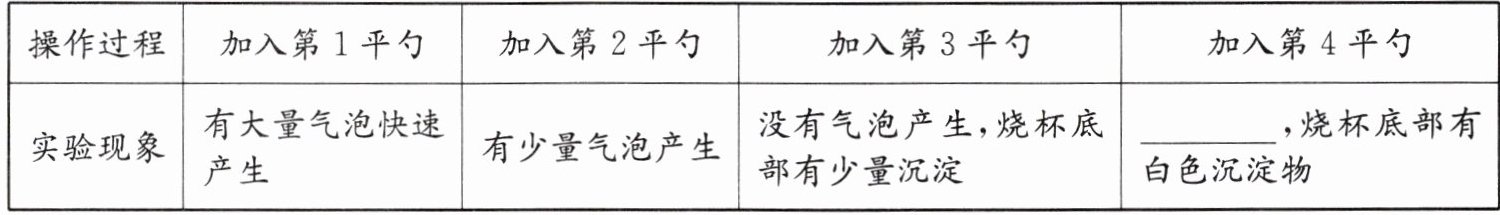 操作过程 加入第1平勺 加入第2平勺 加入第3平勺 加入第4平勺
实验现象 有大量气泡快速产生 有少量气泡产生 没有气泡产生,烧杯底部有少量沉淀 ________,烧杯底部有白色沉淀物